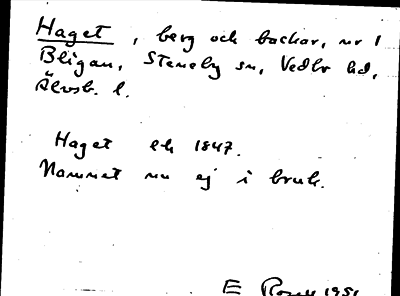 Haget, berg och backar, nr 1
Bligan, Steneby sn, Vedbo hd,
Älvsb. l.
Haget ek 1847.
Namnet nu ej i bruk.
E 1951